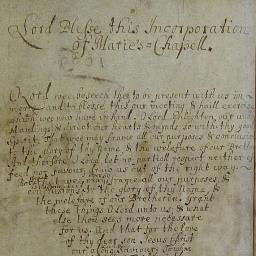 Lord Blesse this Incorporation
of Marie's=Chapell.
O Lord we beseech thee to be present with us in
mercy and to blesse this our meeting & haill exercise
which wee now have in hand. O Lord Enlighten our under
standings & direct our hearts & mynds so with thy good
Spirit, that wee may frame all our purposes & conclusiones
to the glory of thy Name & the welefare of our Brethren
And therfore O Lord let no partiall respect neither of
feed nor favour, draw us out of the right way.
But grant that we may frame all our purposes &
conclusiones to the glory of thy Name, &
the welefare of our Brethren. Grant
these things O Lord unto us, & what
else thou sees more necessare
for us, and that for the love
of thy dear son Jesus Christ
our alone